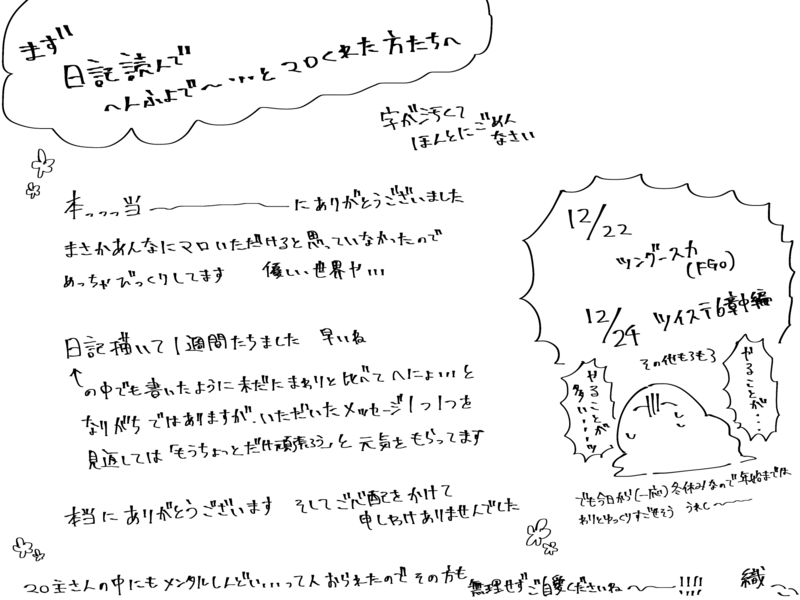 まず
日記読んで
へんふよで〜…とマロくれた方たちへ
字が汚くて
ほんとにごめん
なさい
本っっっ当──────にありがとうございました
まさかあんなにマロいただけると思っていなかったので
めっちゃびっくりしてます　優しい世界や…
日記描いて1週間たちました　早いね
↑の中でも書いたように未だたまわりと比べてへにょ…と
なりがちではありますが、いただいたメッセージ1つ1つを
見返しては「もうちょっとだけ頑張ろう」と元気をもらってます
本当にありがとうございます　そしてご心配をかけて
申しわけありませんでした
12/22
ツングースカ
(FGO)
12/24　ツイステ6章中編
その他もろもろ
やることが…
やることが
多い……ッ
でも今日から(一応)冬休みなので年始までは
わりとゆっくりすごせそう　うれし〜
20主さんの中にもメンタルしんどい…って人おられたのでその方も
無理せずご自愛くださいね〜!!!!
織